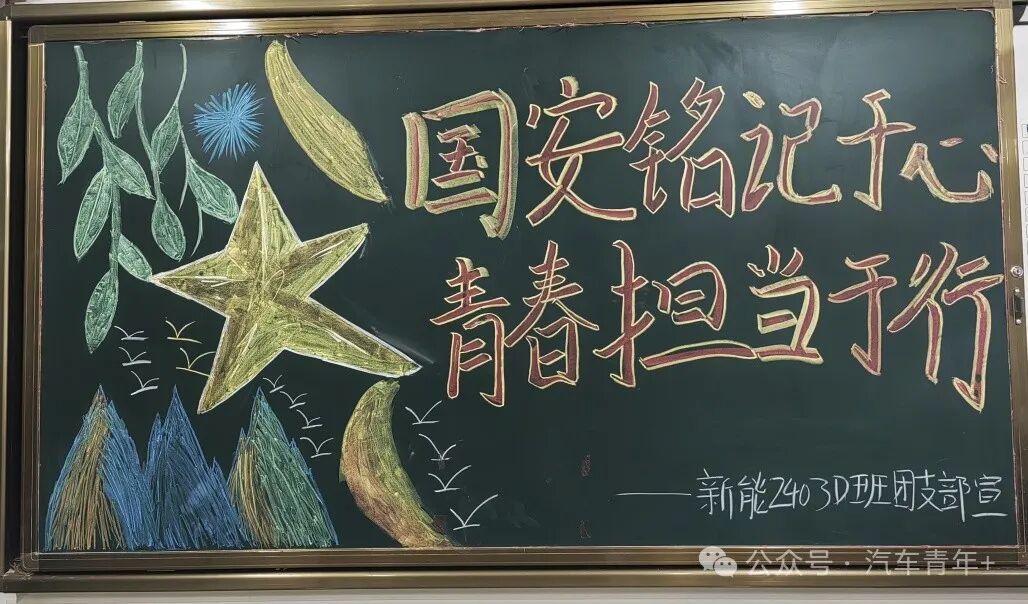 国安铭记于心
青春担当于行
——新能2403D班团支部宣
公众号·汽车青年+